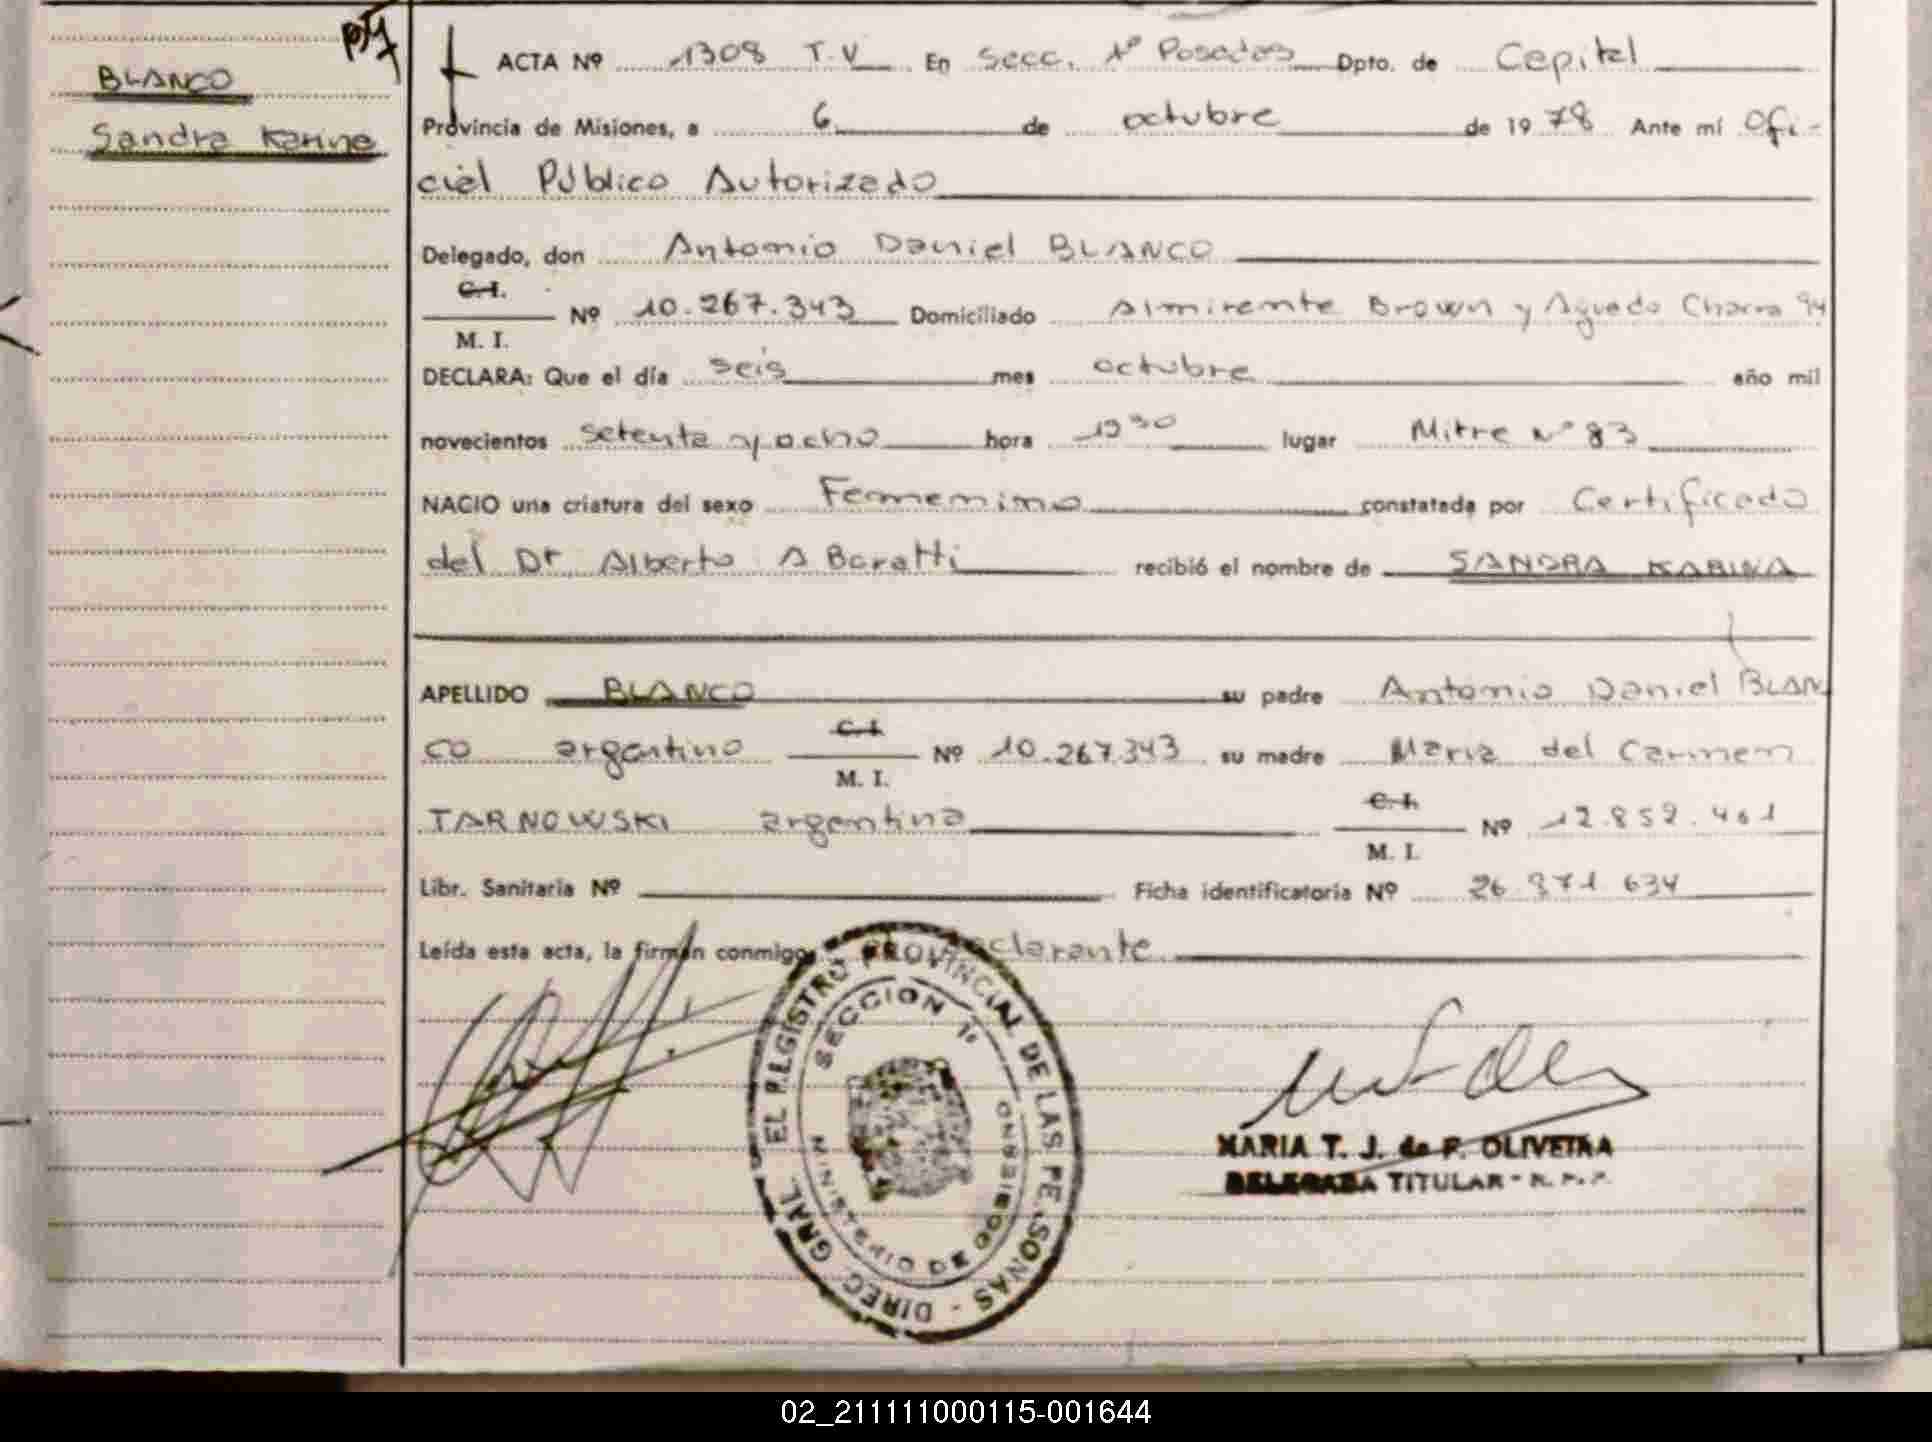 BLANCO
Sandra Karina
ACTA Nº 1308 T.V En Secc. 1º Posadas Dpto. de Capital
Provincia de Misiones, a 6 de octubre de 1978 Ante mí Ofi-
cial Público Autorizado
Delegado, don Antonio Daniel BLANCO
C.I.
M. I. Nº 10.267.343 Domiciliado Almirante Brown y Aguado Charra 94
DECLARA: Que el día seis mes octubre año mil
novecientos setenta y ocho hora 1930 lugar Mitre Nº 83
NACIO una criatura del sexo Femenino constatada por Certificado
del Dr. Alberto A Baratti recibió el nombre de SANDRA KARINA
APELLIDO BLANCO su padre Antonio Daniel BLAN
CO argentino C.I. M. I. Nº 10.267.343 su madre Maria del Carmen
TARNOWSKI argentina C.I. M. I. Nº 12.852.461
Libr. Sanitaria Nº Ficha identificatoria Nº 26.871.634
Leída esta acta, la firman conmigo declarante
DIREC GRAL EL REGISTRO PROVINCIAL DE LAS PERSONAS -
SECCION 1º
MINISTERIO DE GOBIERNO
MARIA T. J. de F. OLIVEIRA
DELEGADA TITULAR - R. P. P.
02_211111000115-001644